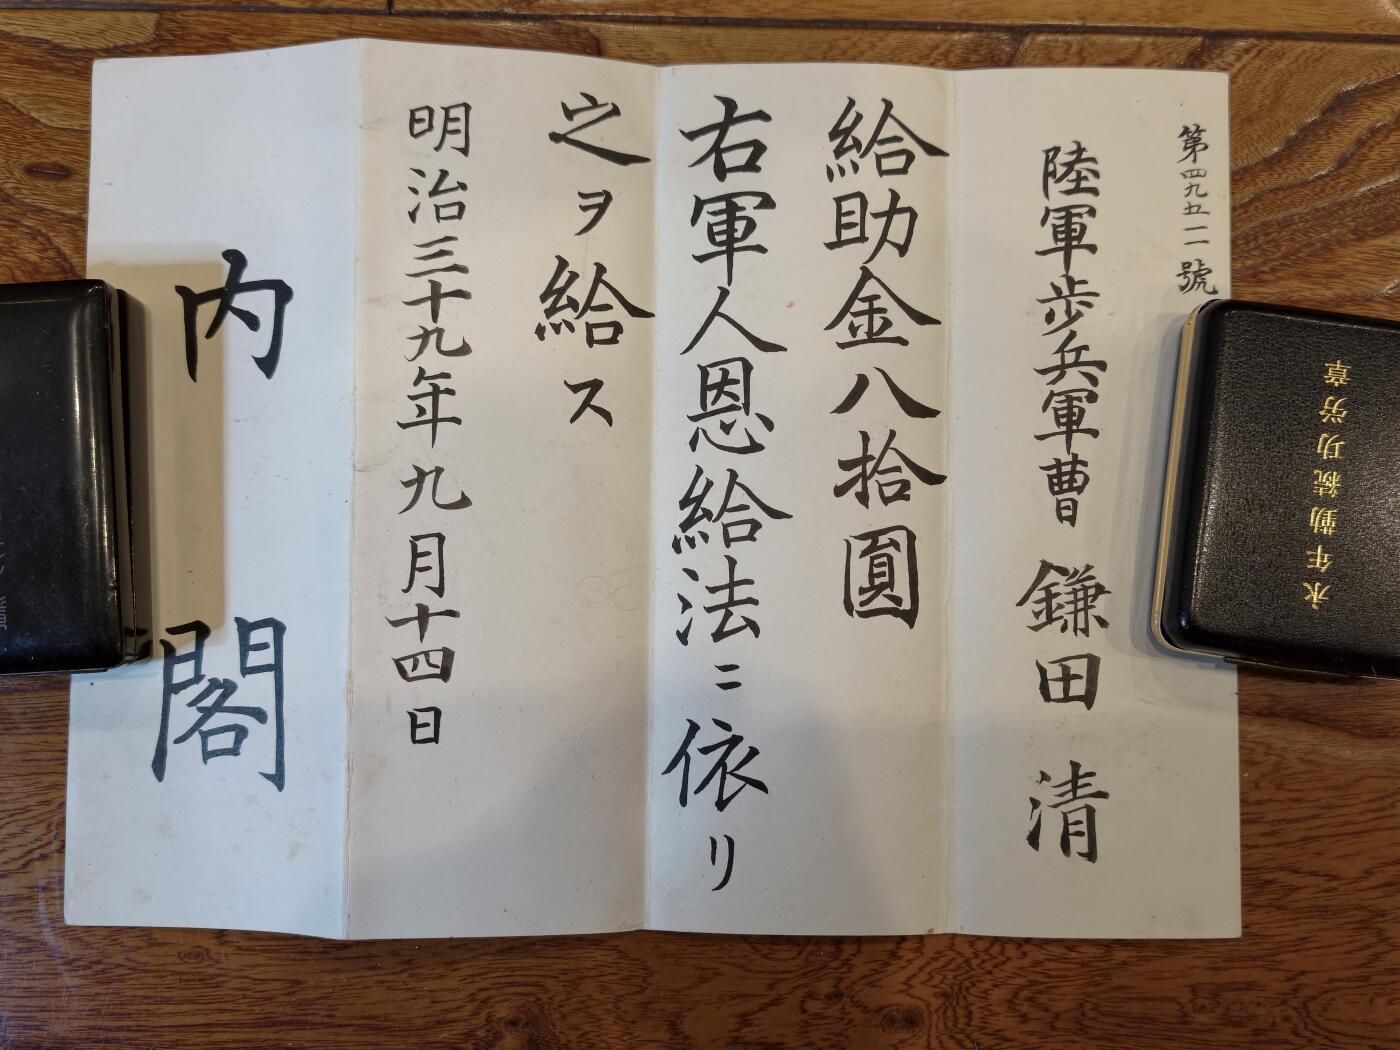 第四九五二號
陸軍歩兵軍曹 鎌田 清
給助金八拾圓
右軍人恩給法ニ依リ
之ヲ給ス
明治三十九年九月十四日
内閣
永年勤続功労章